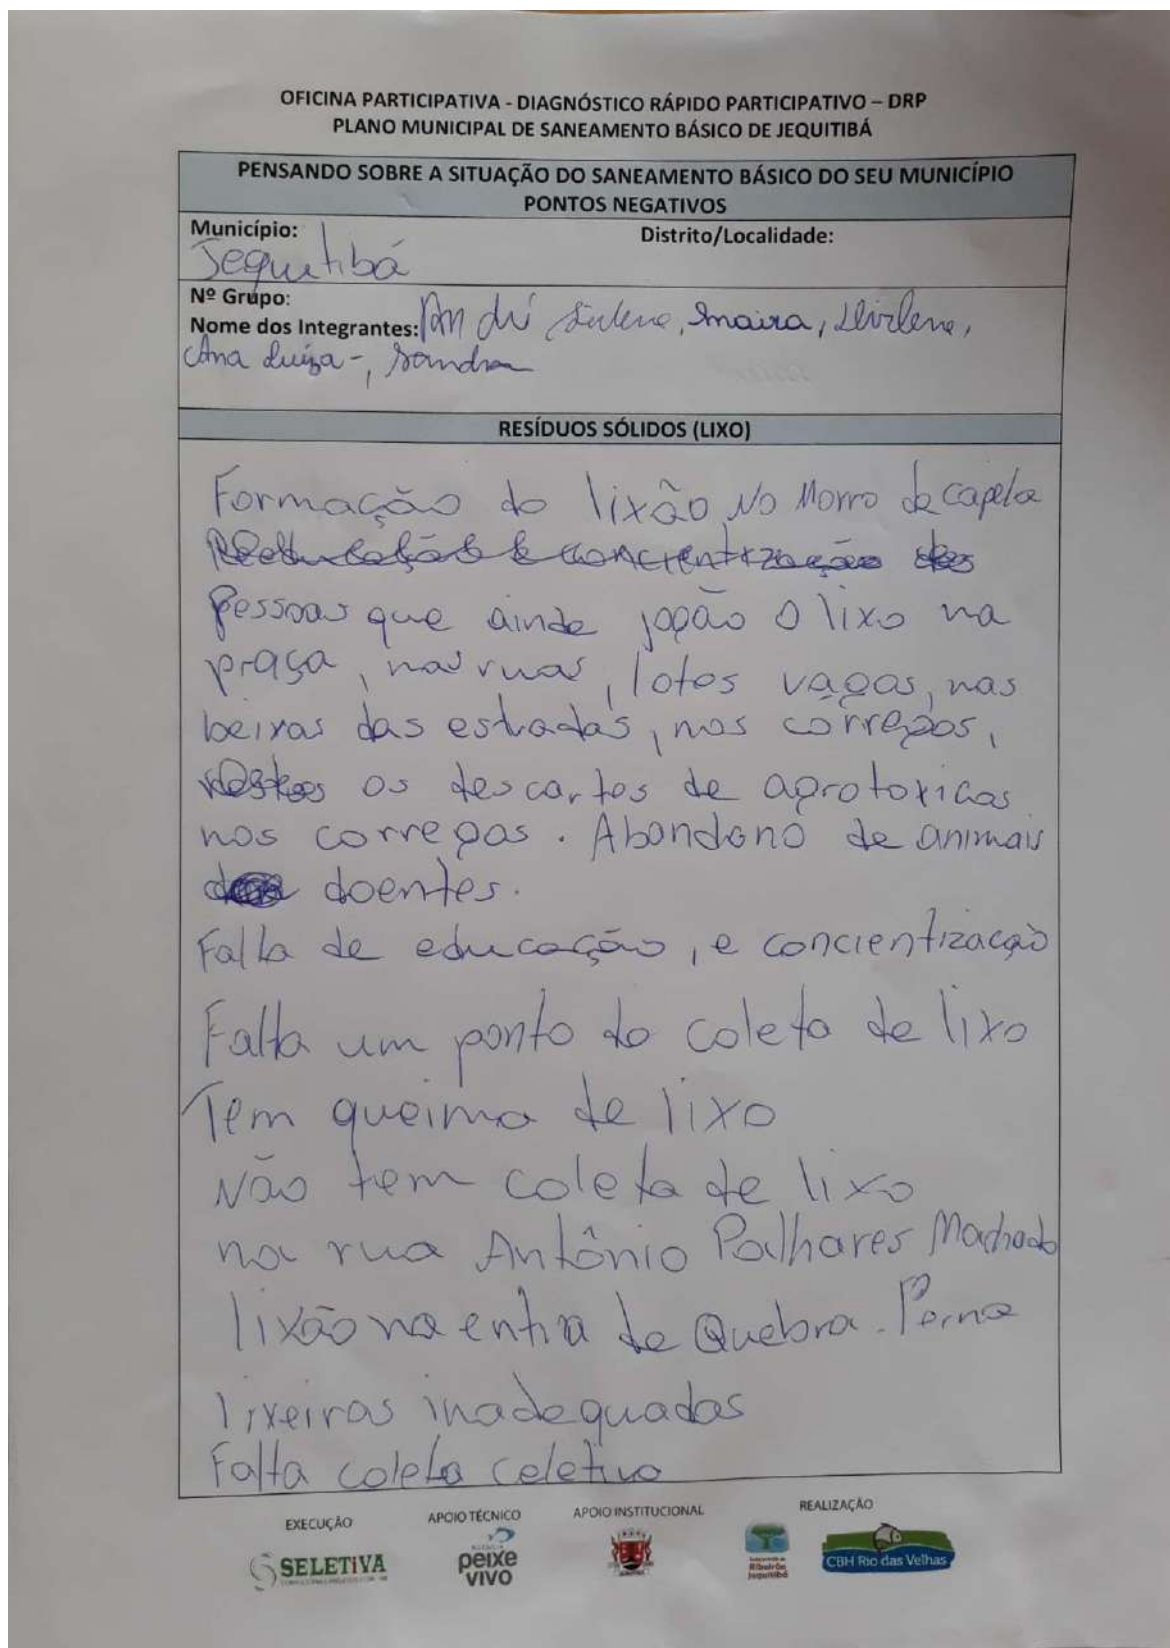 OFICINA PARTICIPATIVA - DIAGNÓSTICO RÁPIDO PARTICIPATIVO – DRP
PLANO MUNICIPAL DE SANEAMENTO BÁSICO DE JEQUITIBÁ
PENSANDO SOBRE A SITUAÇÃO DO SANEAMENTO BÁSICO DO SEU MUNICÍPIO
PONTOS NEGATIVOS
Município: Distrito/Localidade:
Jequitibá
Nº Grupo:
Nome dos Integrantes: Maira,
Ana Luiza-, Sandra
RESÍDUOS SÓLIDOS (LIXO)
Formação do lixão no Morro da capela
concientização das
Pessoas que ainda jogão o lixo na
praça, nas ruas, lotes vagos, nas
beiras das estradas, nos corregos,
os descartes de agrotoxicos
nos corregos. Abandono de animais
doentes.
Falta de educação, e concientizacão
Falta um ponto de coleta de lixo
Tem queima de lixo
Não tem coleta de lixo
na rua Antônio Palhares Machado
lixão na entra de Quebra-Perna
lixeiras inadequadas
Falta coleta celetiva
EXECUÇÃO APOIO TÉCNICO APOIO INSTITUCIONAL REALIZAÇÃO
SELETIVA
peixe
VIVO
Ribeirão
Jequitibá
CBH Rio das Velhas